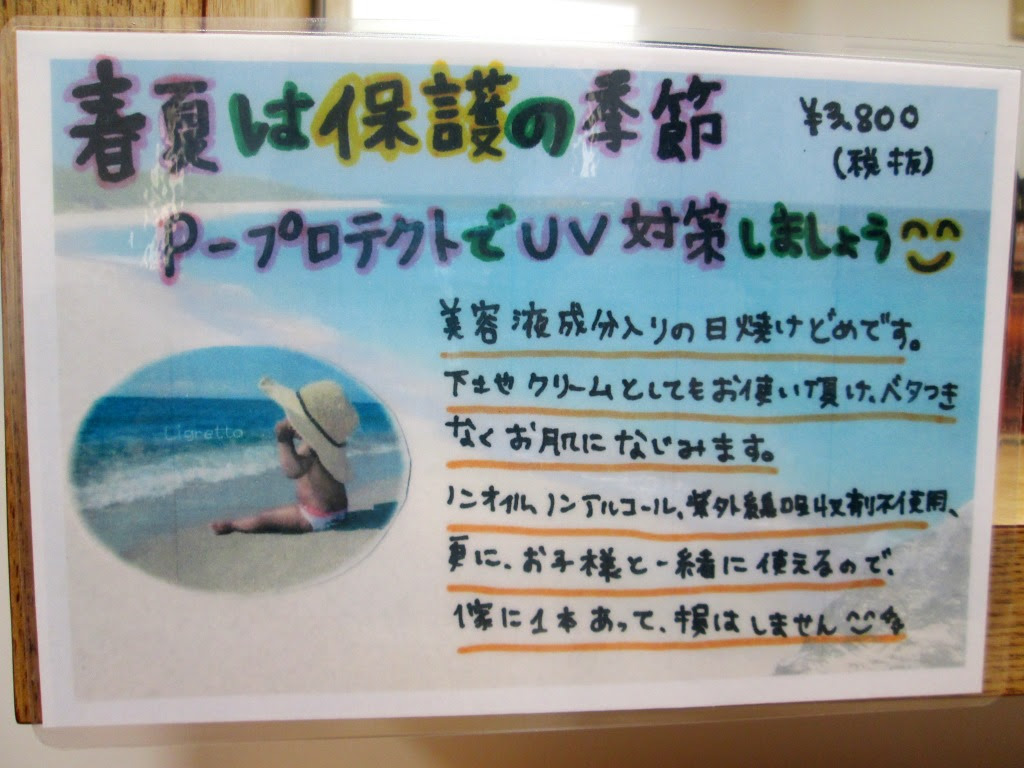 春夏は保護の季節
¥3,800
(税抜)
P-プロテクトでUV対策しましょう
美容液成分入りの日焼けどめです。
下地やクリームとしてもお使い頂け、ベタつき
なくお肌になじみます。
Ligretto
ノンオイル、ノンアルコール、紫外線吸収剤不使用、
更に、お子様と一緒に使えるので、
1家に1本あって、損はしません